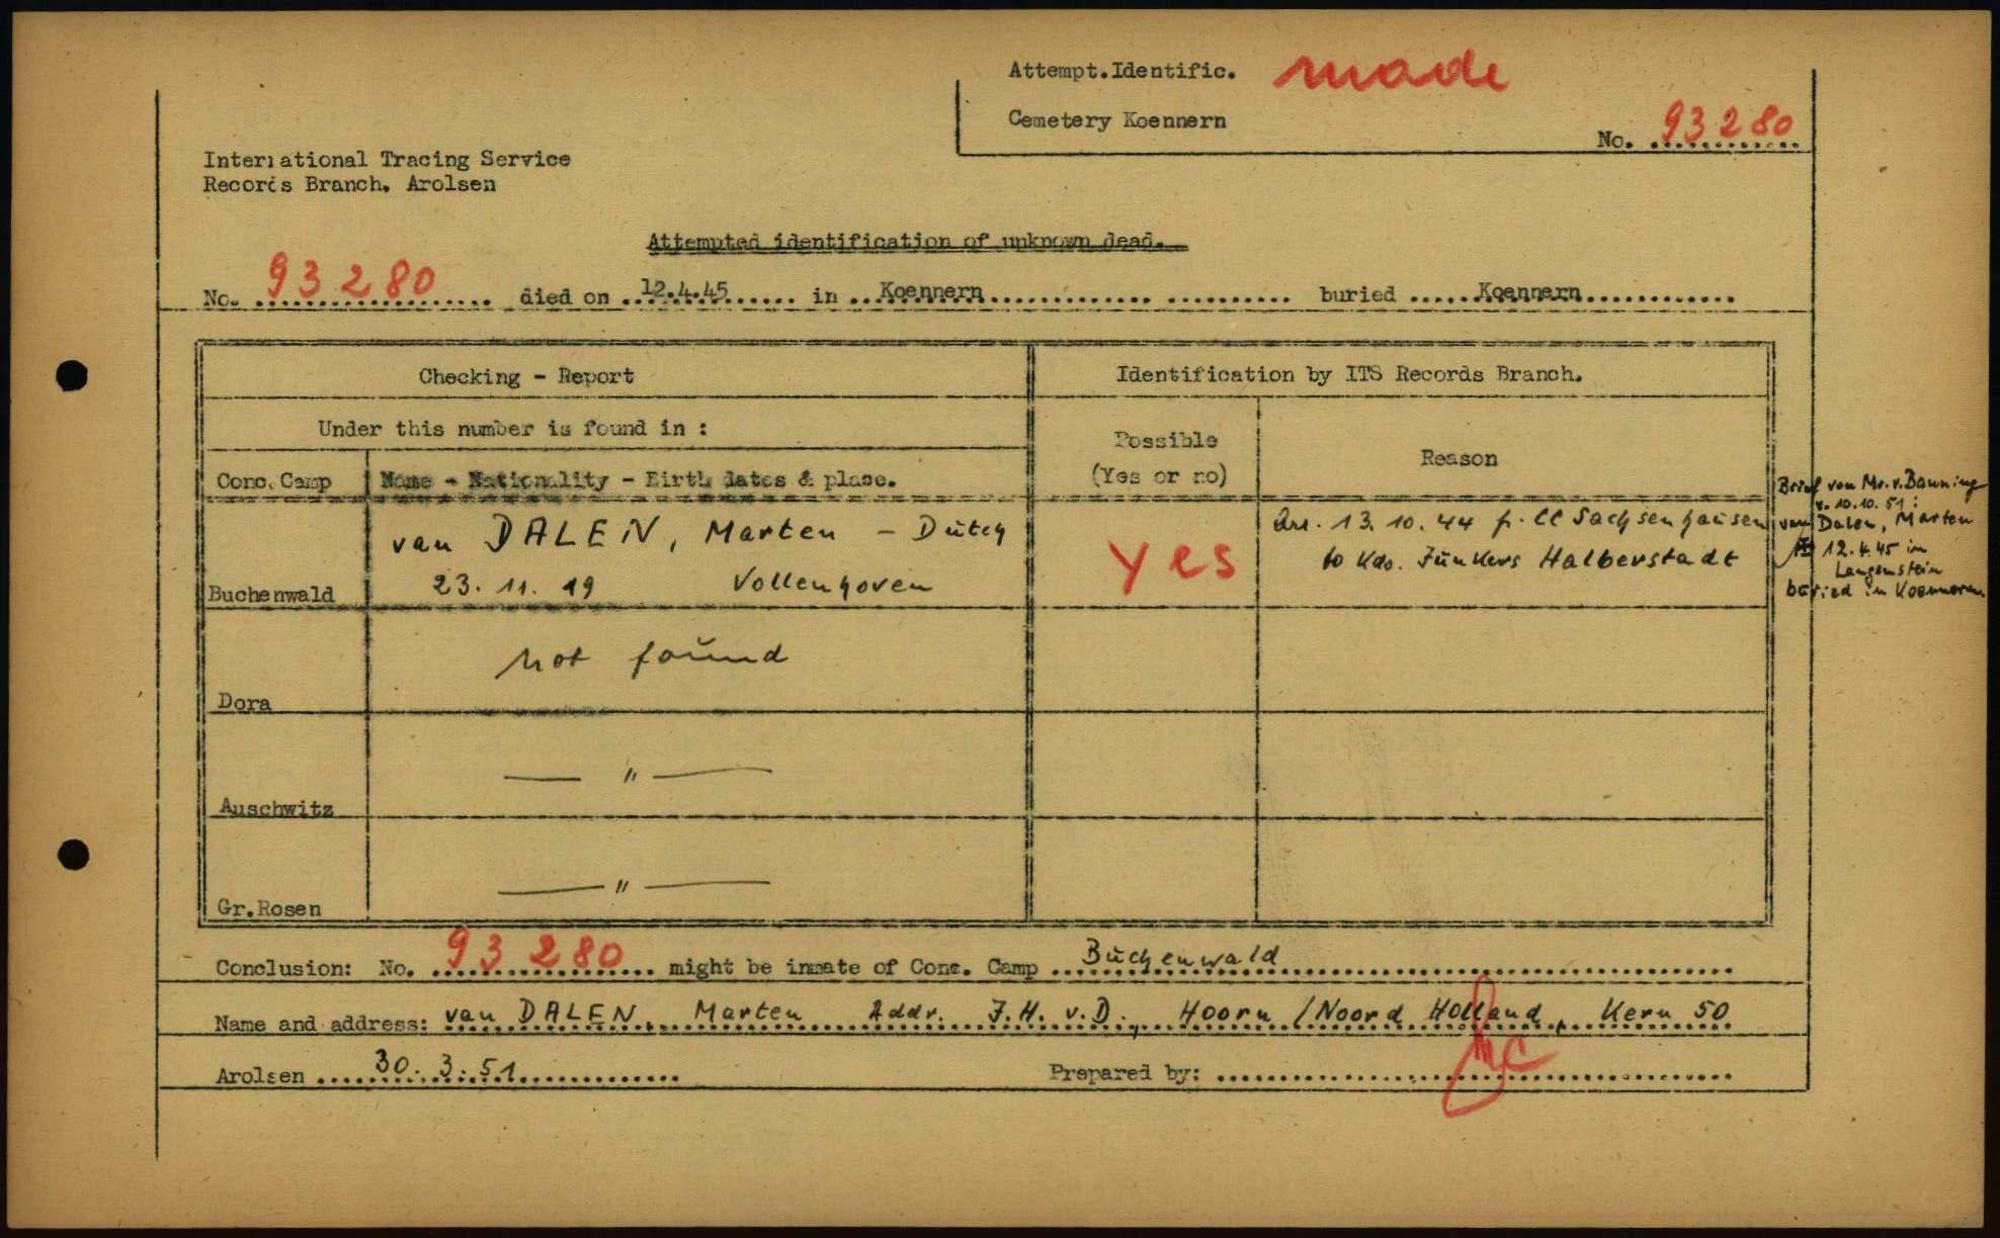 Attempt.Identific. made
Cemetery Koennern
No. 93280
International Tracing Service
Records Branch. Arolsen
Attempted identification of unknown dead.
No. 93280 died on 12.4.45 in Koennern buried Koennern
Checking - Report
Identification by ITS Records Branch.
Under this number is found in :
Possible
(Yes or no)
Reason
Conc. Camp
Name - Nationality - Birth dates & place.
Buchenwald
van DALEN, Marten - Dutch
23. 11. 19 Vollenhoven
Yes
Arr. 13. 10. 44 fr. CC Sachsenhausen
to Kdo. Junkers Halberstadt
Brief von Mr. v. Banning
v. 10.10.51 :
van Dalen, Marten
12.4.45 in
Langenstein
buried in Koennern
Dora
not found
Auschwitz
— " —
Gr.Rosen
— " —
Conclusion: No. 93280 might be inmate of Conc. Camp Buchenwald
Name and address: van DALEN, Marten Addr. J.H. v.D., Hoorn / Noord Holland, Kern 50
Arolsen 30. 3. 51
Prepared by: